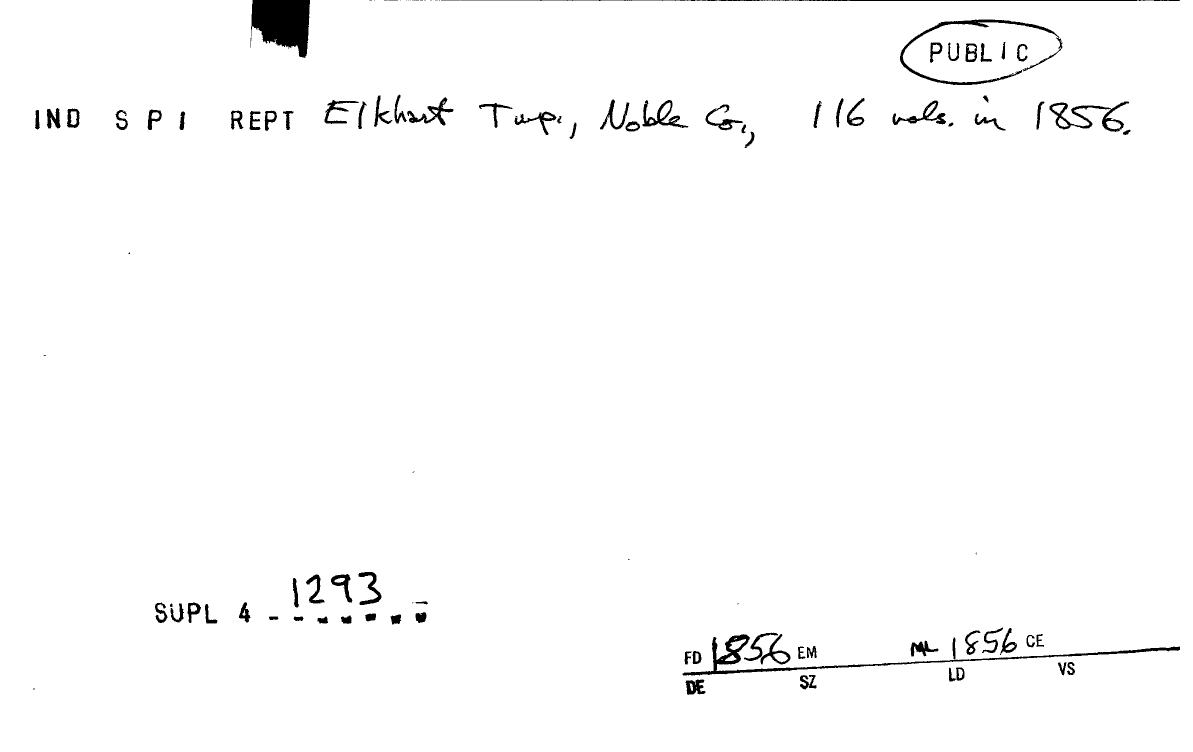 PUBLIC
IND S P I REPT Elkhart Twp., Noble Co., 116 vols. in 1856.
1293
SUPL 4 - - - - - - -
FD 1856 EM ML 1856 CE
DE SZ LD VS